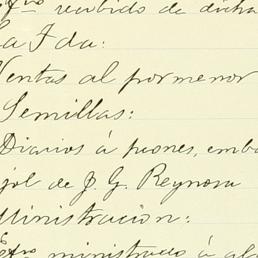 recibido de dicha
La Fda:
Ventas al pormenor
Semillas:
Diarios á peones, emba
jol de J. G. Reynosa
Ministracion:
Efvo ministrado á